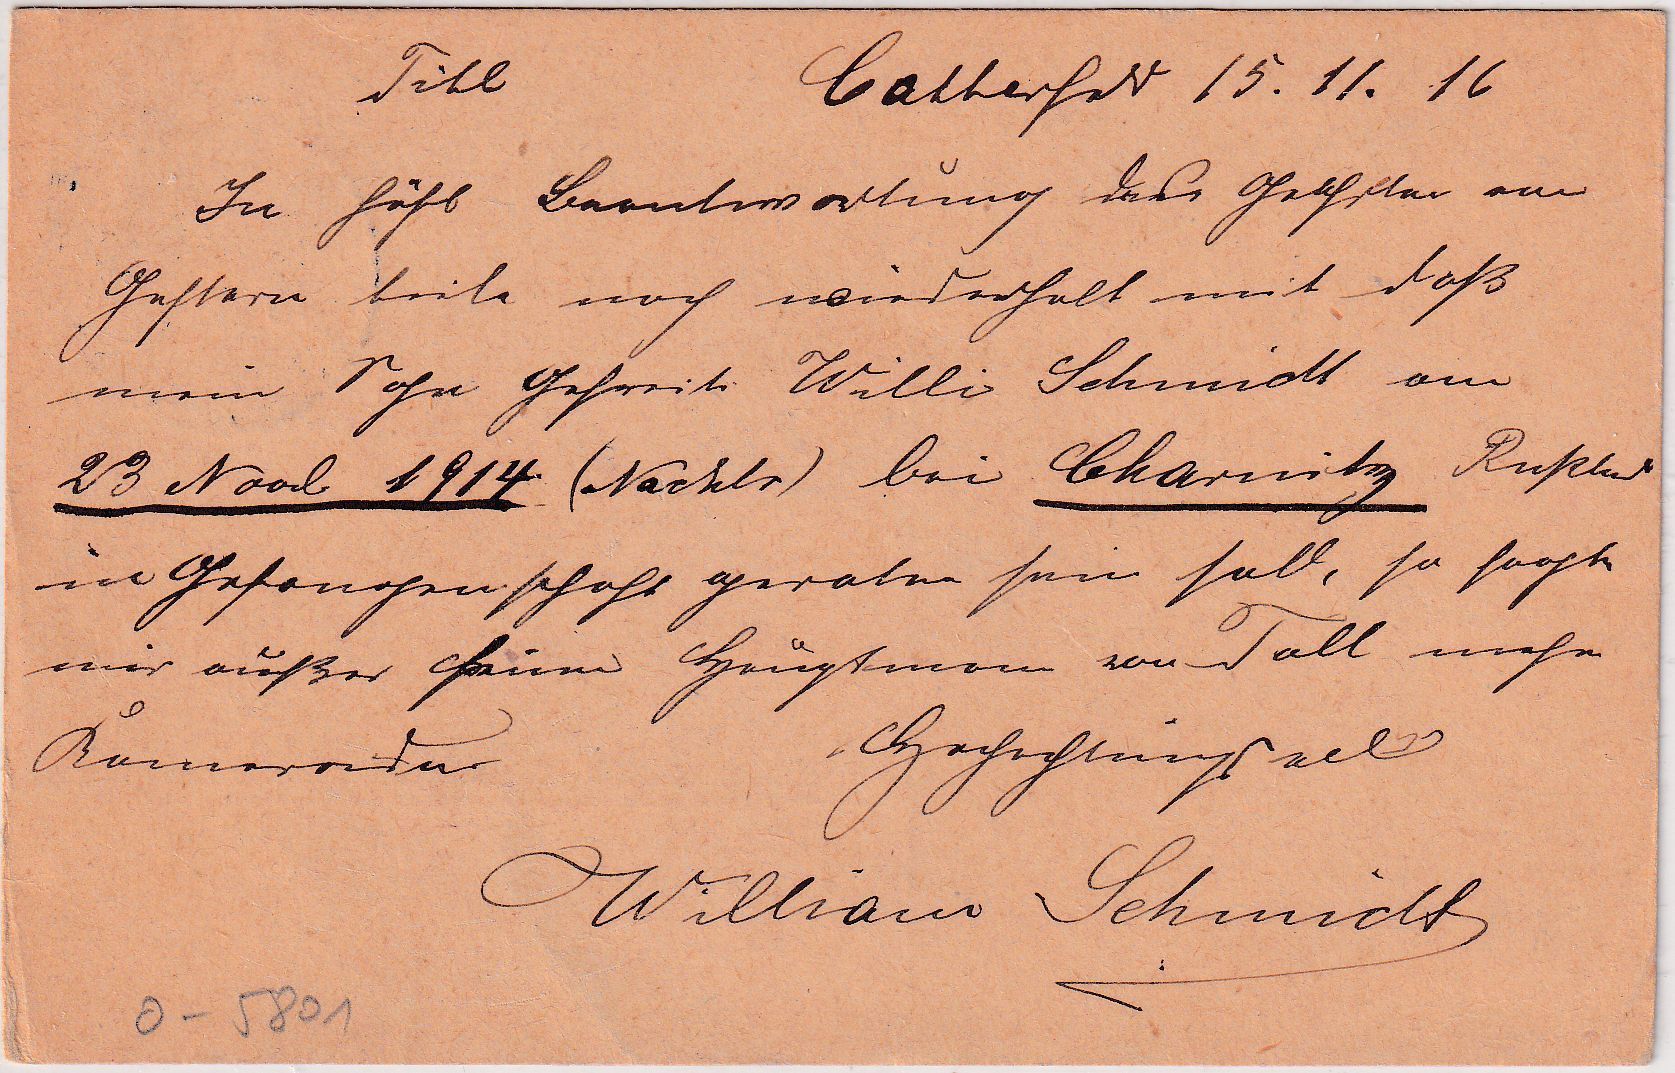 Titl Catterfeld 15. 11. 16
In höfl Beantwortung des Geehrten von
Gestern teile noch wiederholt mit daß
mein Sohn Gefreite Willi Schmidt am
23 Novb 1914 (Nachts) bei Charnitz Rußland
in Gefangenschaft geraten sein soll, so sagte
mir außer seinem Hauptmann von Toll mehre
Kameraden Hochachtungsvoll
William Schmidt
0-5801